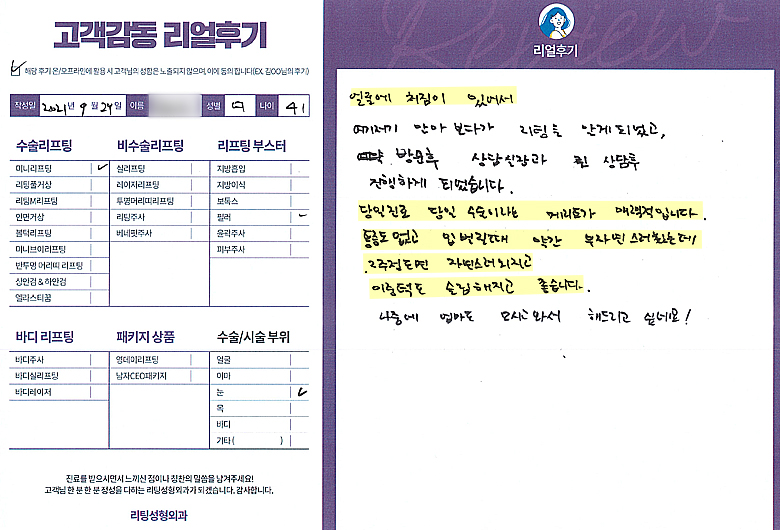 고객감동 리얼후기
해당 후기 온/오프라인에 활용 시 고객님의 성함은 노출되지 않으며, 이에 동의 합니다(EX. 김OO님의 후기)
작성일 2021년 9월 24일 이름 성별 여 나이 41
수술리프팅
미니리프팅
리팅풀거상
리팅M리프팅
안면거상
첨턱리프팅
미니브이리프팅
반투명 머리띠 리프팅
상안검 & 하안검
엘라스티꿈
비수술리프팅
실리프팅
레이저리프팅
투명머리띠리프팅
리팅주사
베네핏주사
리프팅 부스터
지방흡입
지방이식
보톡스
필러
윤곽주사
피부주사
바디 리프팅
바디주사
바디실리프팅
바디레이저
패키지 상품
영데이리프팅
남자CEO패키지
수술/시술 부위
얼굴
이마
눈
목
바디
기타 ( )
진료를 받으시면서 느끼신 점이나 칭찬의 말씀을 남겨주세요!
고객님 한 분 한 분 정성을 다하는 리팅성형외과가 되겠습니다. 감사합니다.
리팅성형외과
Review
리얼후기
얼굴에 처짐이 있어서
여기저기 알아 보다가 리팅을 알게되었고,
예약 방문후 상담실장과 긴 상담후
진행하게 되었습니다.
당일진료 당일 수술이라는 메리트가 매력적입니다.
통증도 없고 입 벌릴때 약간 부자연스러웠는데
2주정도면 자연스러워지고
이중턱도 슬림해지고 좋습니다.
나중에 엄마도 모시고와서 해드리고 싶네요!